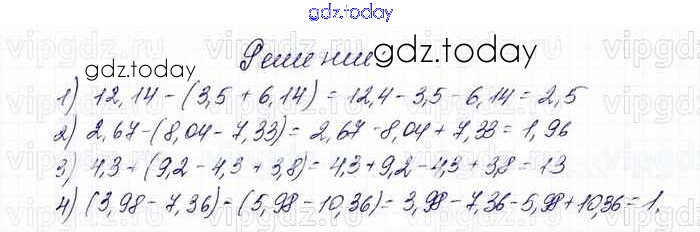 gdz.today
Решение gdz.today
gdz.today
1) 12,14 - (3,5 + 6,14) = 12,4 - 3,5 - 6,14 = 2,5
2) 2,67 - (8,04 - 7,33) = 2,67 - 8,04 + 7,33 = 1,96
3) 4,3 + (9,2 - 4,3 + 3,8) = 4,3 + 9,2 - 4,3 + 3,8 = 13
4) (3,98 - 7,36) - (5,98 - 10,36) = 3,98 - 7,36 - 5,98 + 10,36 = 1.